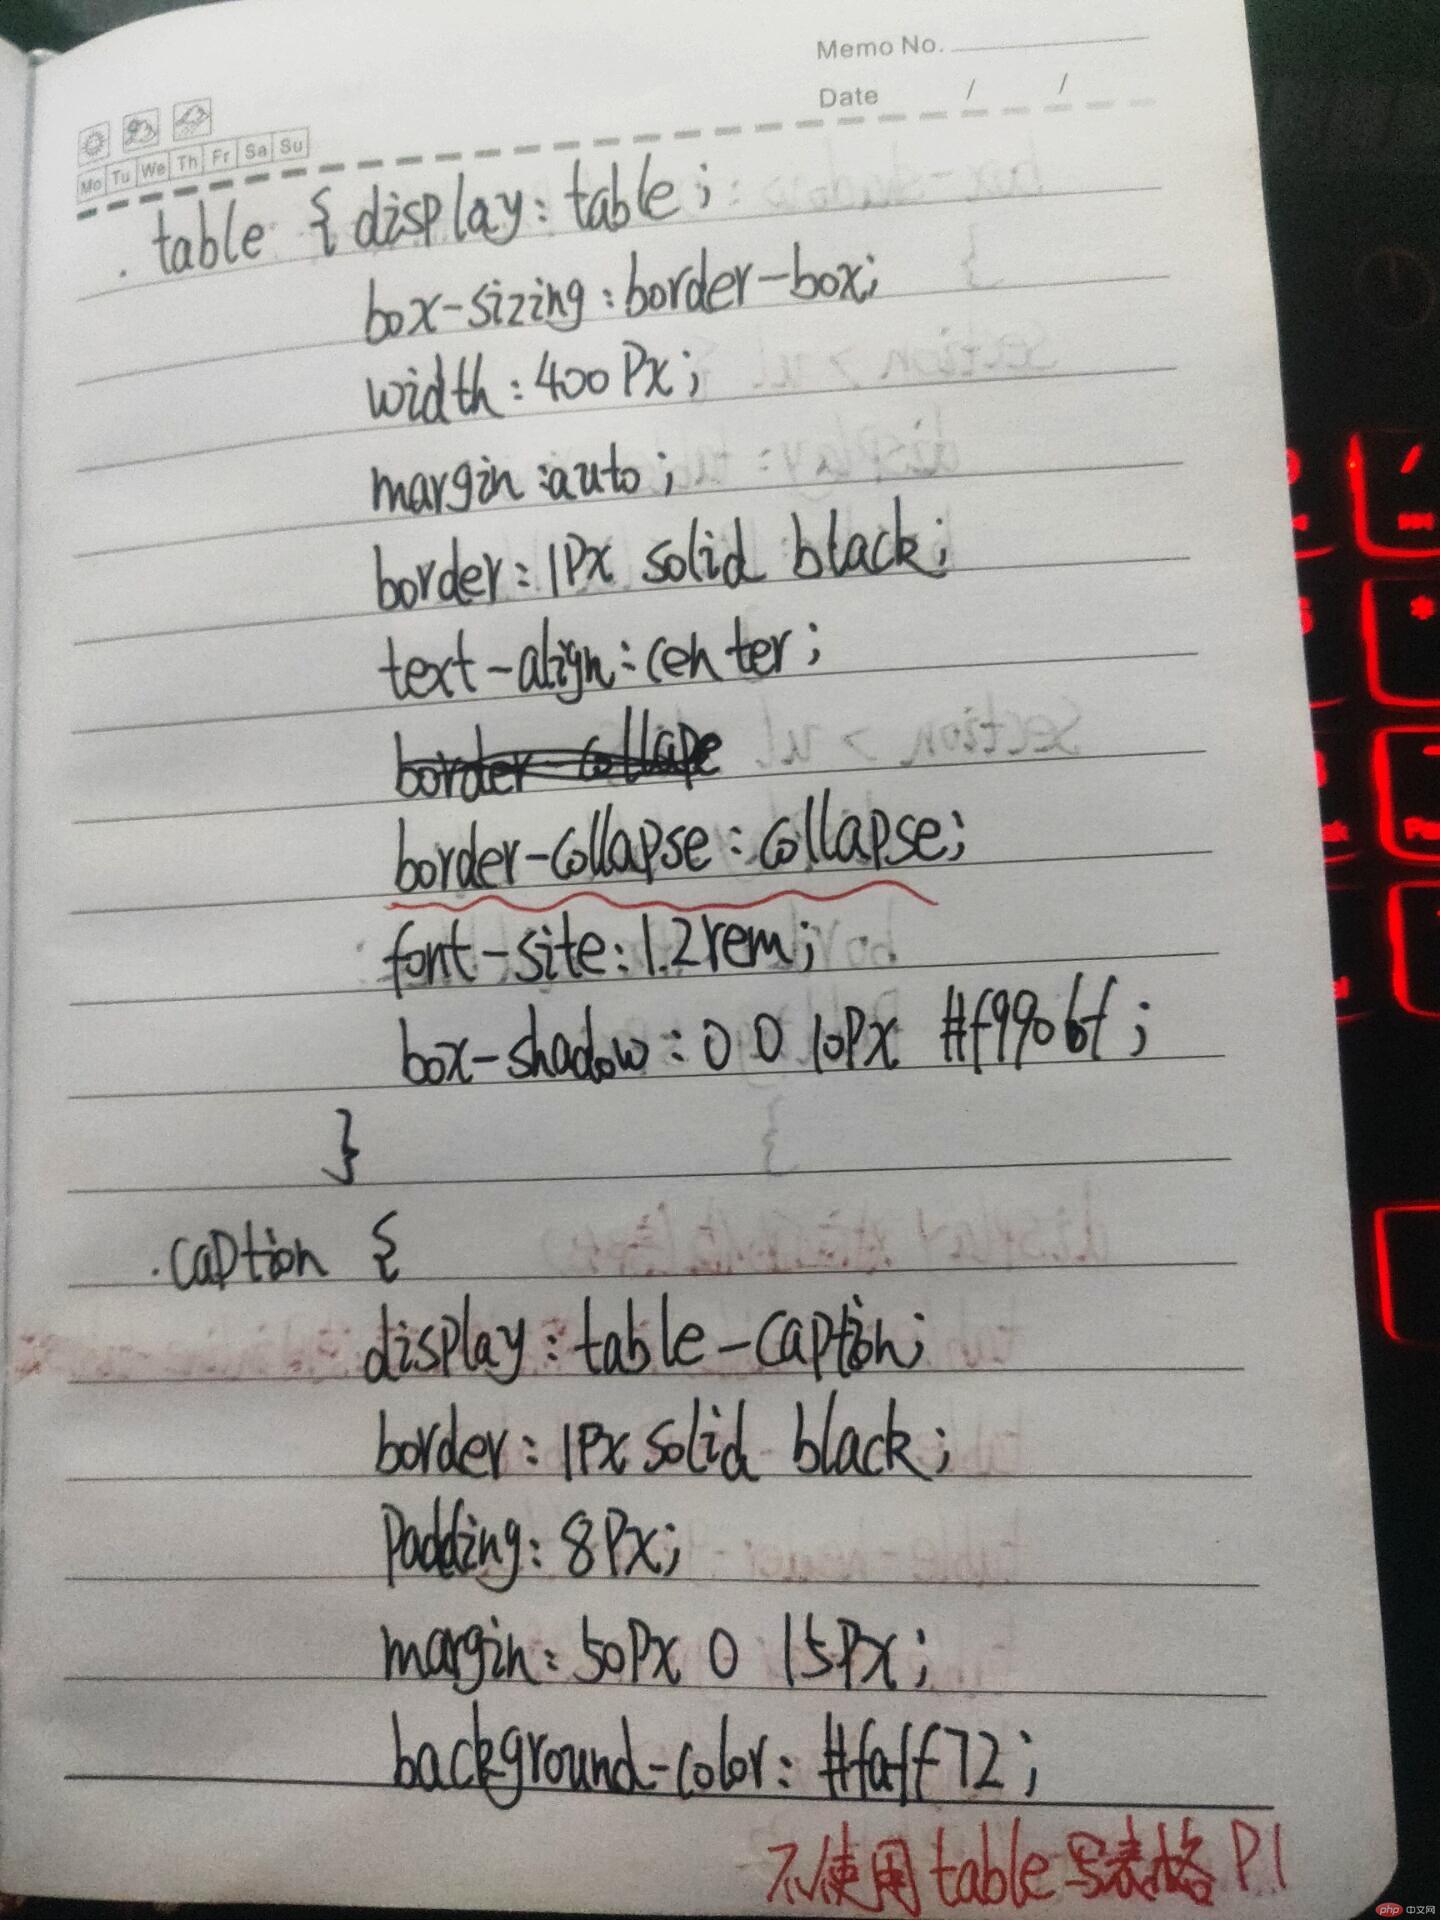 Memo No.
Date / /
Mo Tu We Th Fr Sa Su
.table { display: table;
box-sizing: border-box;
width: 400Px;
margin: auto;
border: 1Px solid black;
text-align: center;
border-collape
border-collapse: collapse;
font-site: 1.2rem;
box-shadow: 0 0 10Px #f9906f;
}
.caption {
display: table-caption;
border: 1Px solid black;
Padding: 8Px;
margin: 50Px 0 15Px;
background-color: #faff72;
不使用table写表格 P1
php 中文网